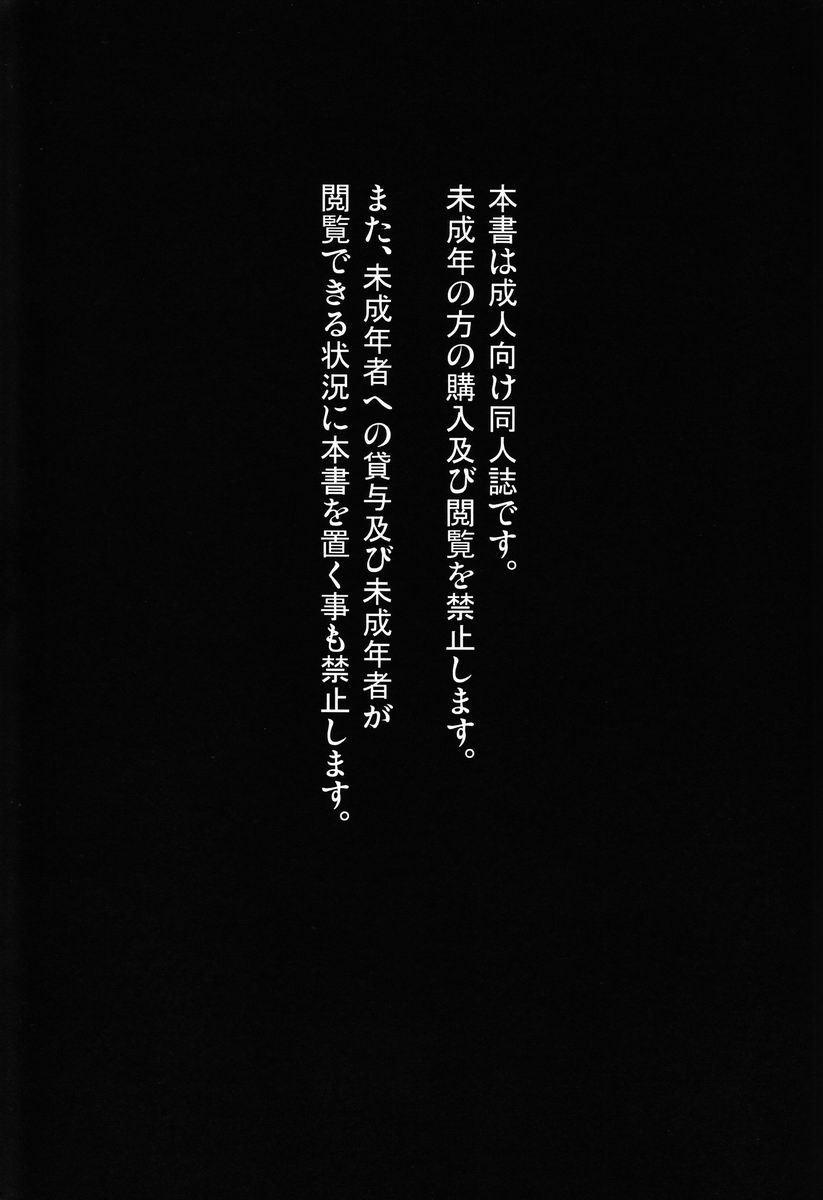 本書は成人向け同人誌です。
未成年の方の購入及び閲覧を禁止します。
また、未成年者への貸与及び未成年者が
閲覧できる状況に本書を置く事も禁止します。